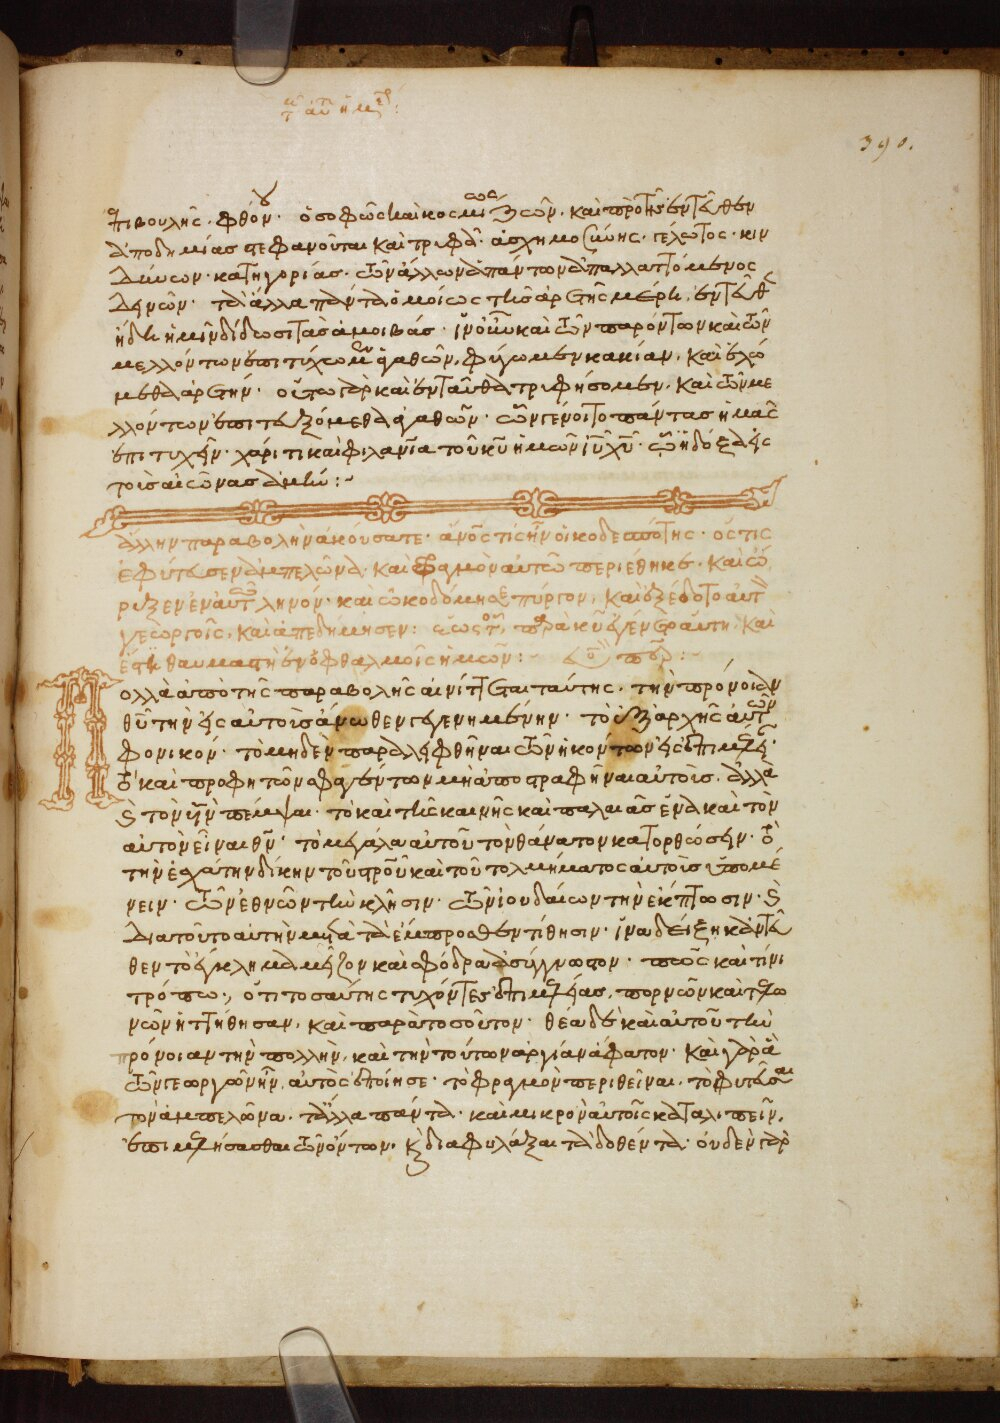 390.
ἐπιβουλῆς. φθόνου. ὁ σοφῶς καὶ κοσμίως ζῶν. καὶ πρὸ τῆς ἐντεῦθεν
ἀποδημίας στεφανοῦται καὶ τρυφᾷ. ἀσχημοσύνης. γέλωτος. κιν
δύνων. κατηγορίας. τῶν ἄλλων ἁπάντων ἀπαλλαττόμενος
δεινῶν. τὰ ἄλλα πάντα ὁμοίως τῆς ἀρετῆς μέρη. ἐντεῦθεν
ἤδη ἡμῖν δίδωσι τὰς ἀμοιβάς. ἵν' οὖν καὶ τῶν παρόντων καὶ τῶν
μελλόντων ἐπιτύχωμεν ἀγαθῶν, φύγωμεν κακίαν. καὶ ἑλώ
μεθα ἀρετήν. οὕτω γὰρ καὶ ἐνταῦθα τρυφήσομεν. καὶ τῶν με
λλόντων ἐπιτευξόμεθα ἀγαθῶν. ὧν γένοιτο πάντας ἡμᾶς
ἐπιτυχεῖν. χάριτι καὶ φιλανίᾳ τοῦ κυ ἡμῶν ιυ χυ. ᾧ ἡ δόξα εἰς
τοὺς αἰῶνας ἀμήν:-
ἄλλην παραβολὴν ἀκούσατε. ανος τίς ἦν οἰκοδεσπότης. ὅστις
ἐφύτευσεν ἀμπελῶνα. καὶ φραγμὸν αὐτῶ περιέθηκε. καὶ ὤ
ρυξεν ἐν αὐτῶ ληνόν. καὶ ὠκοδόμησε πύργον, καὶ ἐξέδοτο αὐτὸν
γεωργοῖς, καὶ ἀπεδήμησεν: ἕως τοῦ, παρὰ κυ ἐγένετο αὕτη. καὶ
ἔστι θαυμαστὴ ἐν ὀφθαλμοῖς ἡμῶν:-
Πολλὰ ἀπὸ τῆς παραβολῆς αἰνίττεται ταύτης. τὴν πρόνοιαν
θυ τὴν εἰς αὐτοὺς ἄνωθεν γεγενημένην. τὸ ἐξ ἀρχῆς αὐτῶν
φονικόν. τὸ μηδὲν παραλειφθῆναι τῶν ἡκόντων εἰς ἐπιμέλειαν.
τὸ καὶ προφητῶν σφαγέντων μὴ ἀποστραφῆναι αὐτούς. ἀλλὰ
καὶ τὸν υν πέμψαι. τὸ καὶ τῆς καινῆς καὶ παλαιᾶς ἕνα καὶ τὸν
αὐτὸν εἶναι θν. τὸ μεγάλα αὐτοῦ τὸν θάνατον κατορθώσειν. τὸ
τὴν ἐσχάτην δίκην τοῦ σροῦ καὶ τοῦ τολμήματος αὐτοὺς ὑπομέ
νειν. τῶν ἐθνῶν τὴν κλῆσιν. τῶν ἰουδαίων τὴν ἔκπτωσιν. καὶ
διατοῦτο αὐτὴν μετὰ τὰ ἔμπροσθεν τίθησιν. ἵνα δείξη κἀντεῦ
θεν τὸ ἔγκλημα μεῖζον καὶ σφόδρα ἀσύγγνωστον. πῶς καὶ τίνι
τρόπω. ὅτι τοσαύτης τυχόντες ἐπιμελείας, πορνῶν καὶ τελω
νῶν ἡττήθησαν, καὶ παρὰ τοσοῦτον. θέα δὲ καὶ αὐτοῦ τὴν
πρόνοιαν τὴν πολλὴν, καὶ τὴν τούτων ἀργίαν ἄφατον. καὶ γὰρ ἃ
τῶν γεωργῶν ἦν, αὐτὸς ἐποίησε. τὸ φραγμὸν περιθεῖναι. τὸ φυτεῦσαι
τὸν ἀμπελῶνα. τἄλλα πάντα. καὶ μικρὸν αὐτοῖς κατάλιπεῖν.
ἐπιμελήσασθαι τῶν ὄντων. καὶ διαφυλάξαι τὰ δοθέντα. οὐδὲν γὰρ